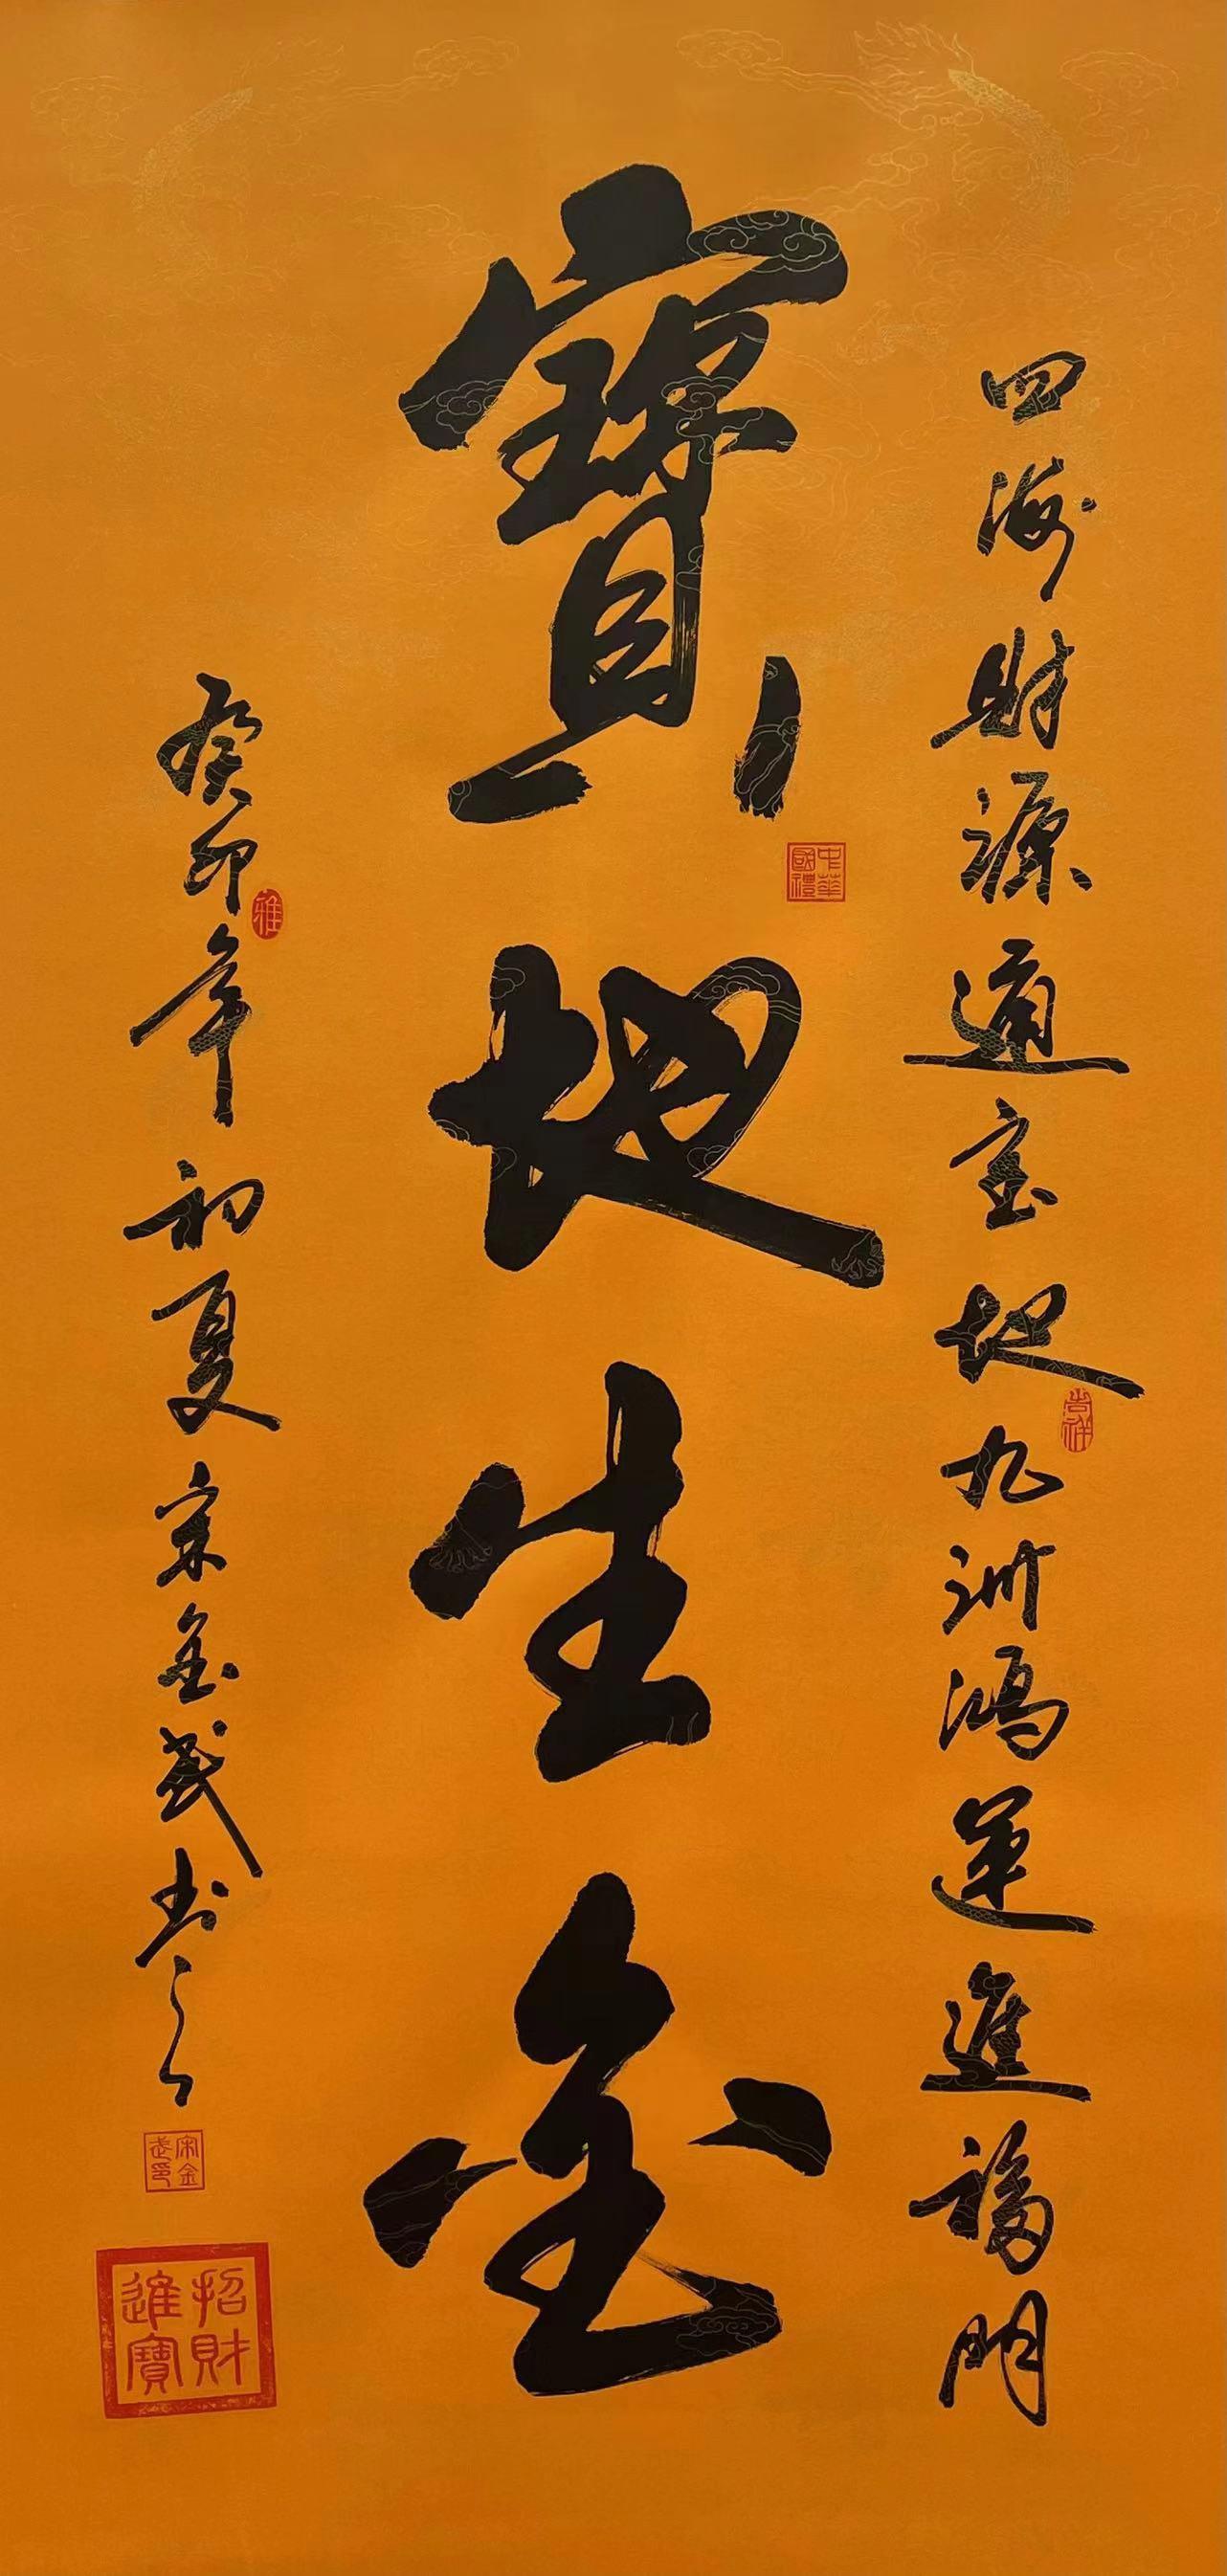 四海財源通宝地九洲鴻運進福門
寶地生金
癸卯年初夏宋金武书之
中華國禮
吉祥
雅
宋金武印
招財進寶